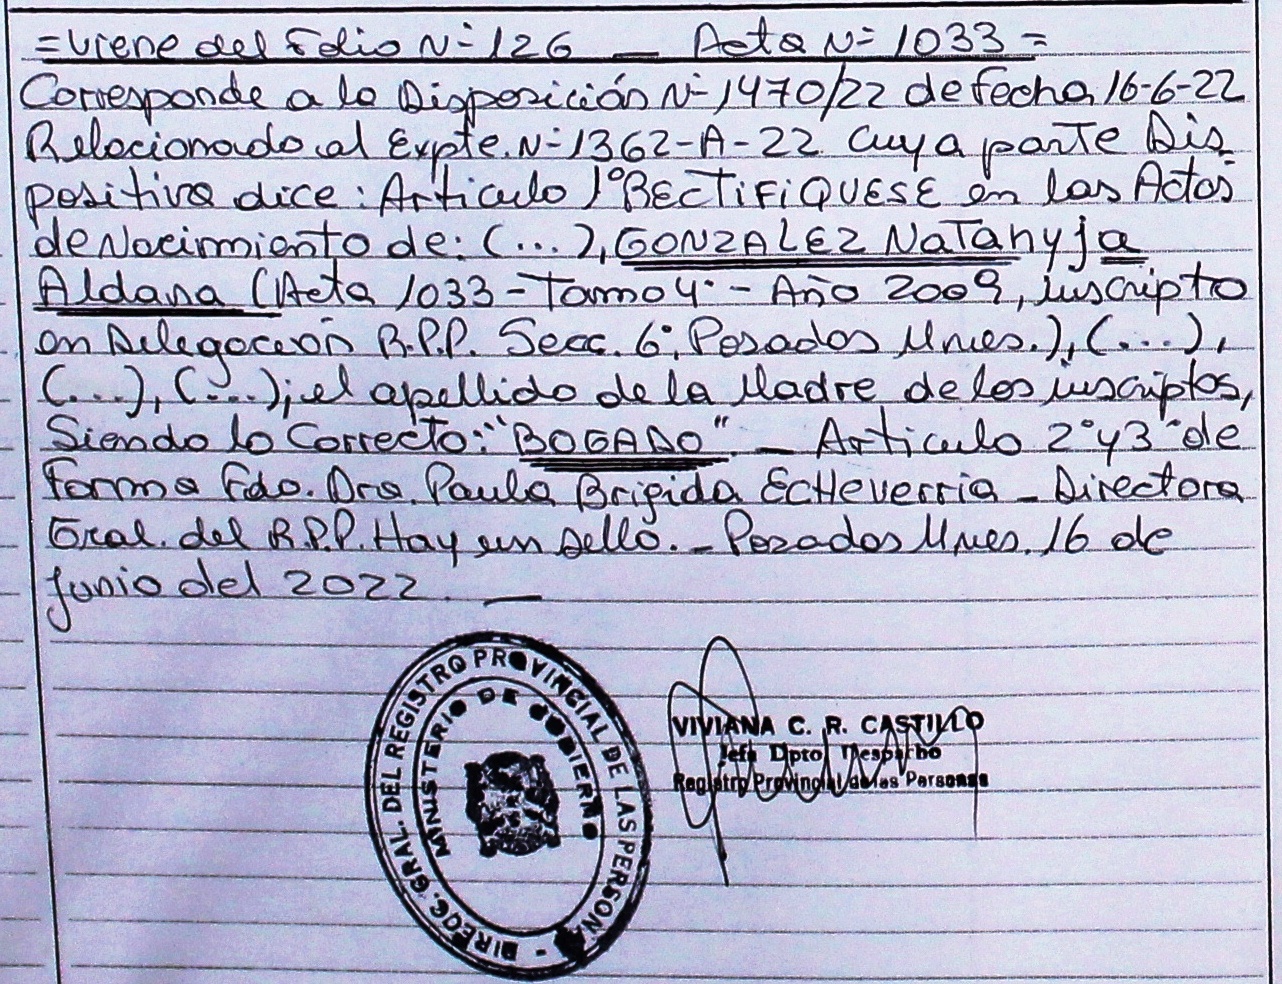 =Viene del Folio N° 126 _ Acta N° 1033=
Corresponde a la Disposición N° 1470/22 de fecha 16-6-22
Relacionado al Expte. N° 1362-A-22 Cuya parte Dis
positiva dice: Articulo 1° RECTIFIQUESE en las Actas
de Nacimiento de: (...), GONZALEZ NATAnyja
Aldana (Acta 1033 - Tomo 4° - Año 2009, inscripto
en Delegación R.P.P. Secc. 6°, Posadas Mnes.), (....),
(...), (...); el apellido de la Madre de los inscriptos,
Siendo lo Correcto: "BOGADO". _ Articulo 2° y 3° de
Forma Fdo. Dra. Paula Brigida EcHeverria _ Directora
Gral. del R.P.P. Hay un sello. _ Posadas Mnes. 16 de
junio del 2022. _
DIREC. GRAL. DEL REGISTRO PROVINCIAL DE LAS PERSONAS -
MINISTERIO DE GOBIERNO
VIVIANA C. R. CASTILLO
Jefa Dpto. Despacho
Registro Provincial de las Personas